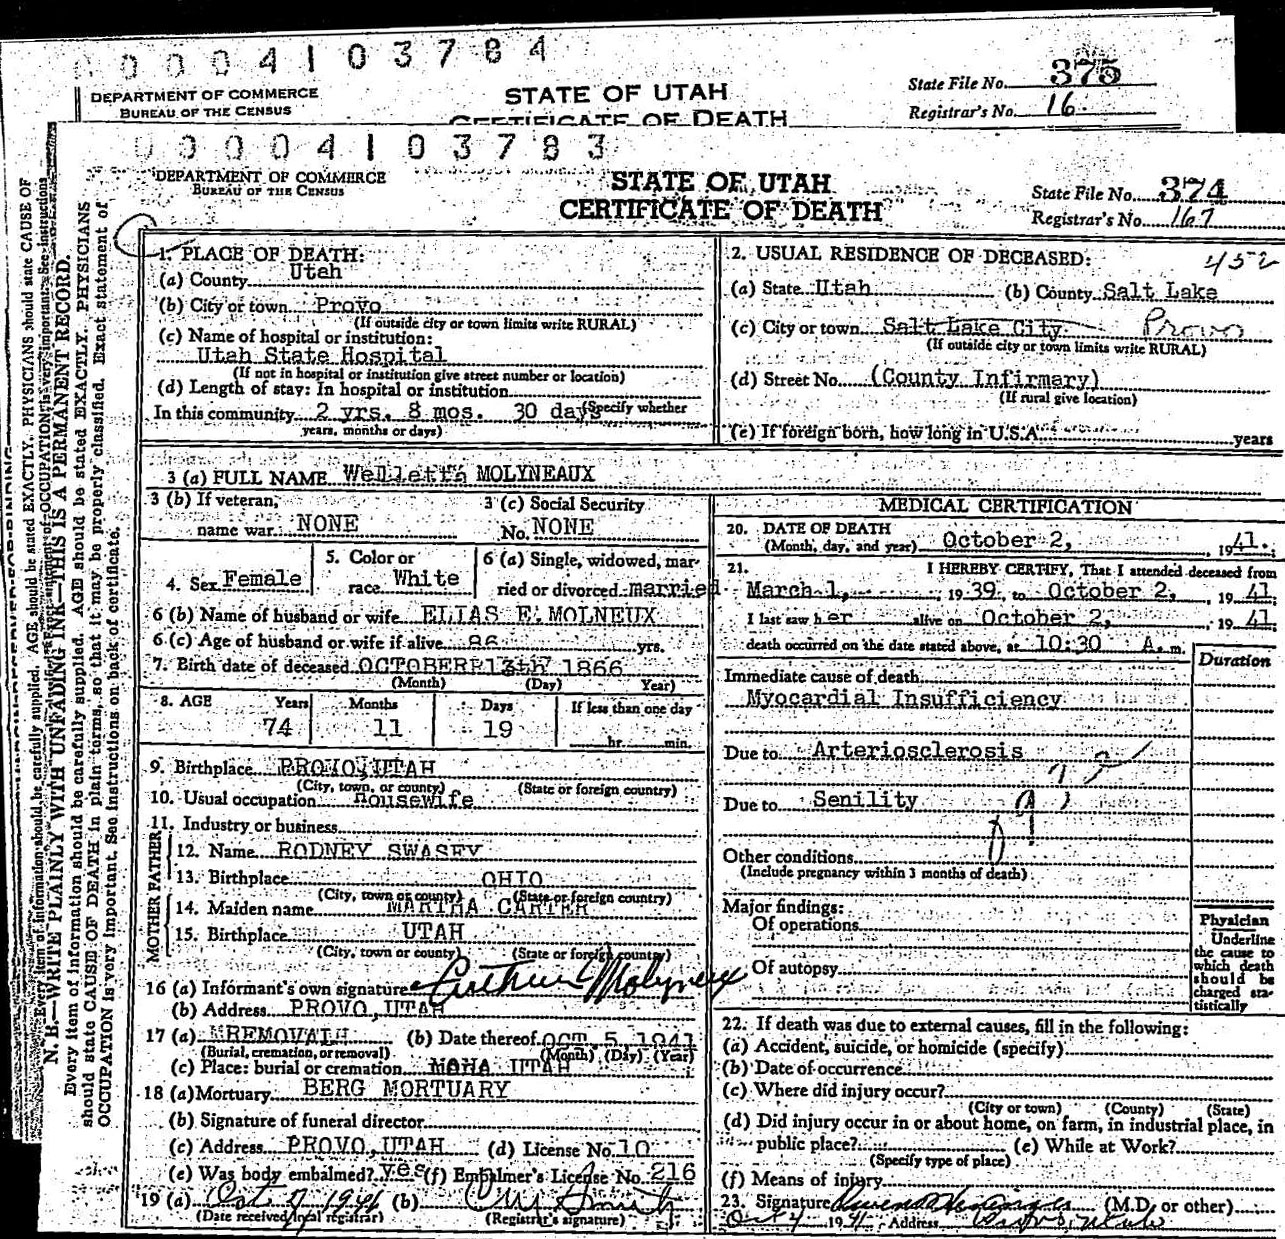 0004103784
DEPARTMENT OF COMMERCE
BUREAU OF THE CENSUS
STATE OF UTAH
CERTIFICATE OF DEATH
State File No. 375
Registrar's No. 16
0004103783
DEPARTMENT OF COMMERCE
BUREAU OF THE CENSUS
STATE OF UTAH
CERTIFICATE OF DEATH
State File No. 374
Registrar's No. 167
N. B.—WRITE PLAINLY WITH UNFADING INK—THIS IS A PERMANENT RECORD.
Every item of information should be carefully supplied. AGE should be stated EXACTLY. PHYSICIANS
should state CAUSE OF DEATH in plain terms, so that it may be properly classified. Exact statement of
OCCUPATION is very important. See instructions on back of certificate.
1. PLACE OF DEATH:
(a) County Utah
(b) City or town Provo
(If outside city or town limits write RURAL)
(c) Name of hospital or institution:
Utah State Hospital
(If not in hospital or institution give street number or location)
(d) Length of stay: In hospital or institution
(Specify whether
In this community 2 yrs. 8 mos. 30 days
years, months or days)
2. USUAL RESIDENCE OF DECEASED: 452
(a) State Utah (b) County Salt Lake
(c) City or town Salt Lake City Provo
(If outside city or town limits write RURAL)
(d) Street No. (County Infirmary)
(If rural give location)
(e) If foreign born, how long in U.S.A. years
3 (a) FULL NAME MOLYNEAUX
3 (b) If veteran,
name war NONE
3 (c) Social Security
No. NONE
4. Sex Female
5. Color or
race White
6 (a) Single, widowed, mar-
ried or divorced married
6 (b) Name of husband or wife ELIAS E. MOLNEUX
6 (c) Age of husband or wife if alive 86 yrs.
7. Birth date of deceased OCTOBER 13th 1866
(Month) (Day) Year)
8. AGE Years Months Days If less than one day
74 11 19 hr. min.
9. Birthplace PROVO, UTAH
(City, town, or county) (State or foreign country)
10. Usual occupation Housewife
11. Industry or business
FATHER
12. Name RODNEY SWASEY
13. Birthplace OHIO
(City, town or county) (State or foreign country)
MOTHER
14. Maiden name MARTHA CARTER
15. Birthplace UTAH
(City, town or county) (State or foreign country)
16 (a) Informant's own signature Arthur Molyneux
(b) Address PROVO, UTAH
17 (a) REMOVAL (b) Date thereof OCT. 5, 1941
(Burial, cremation, or removal) (Month) (Day) (Year)
(c) Place: burial or cremation MOAB UTAH
18 (a) Mortuary BERG MORTUARY
(b) Signature of funeral director
(c) Address PROVO, UTAH (d) License No. 10
(e) Was body embalmed? yes (f) Embalmer's License No. 216
19 (a) Oct 7, 1941 (b)
(Date received local registrar) (Registrar's signature)
MEDICAL CERTIFICATION
20. DATE OF DEATH
(Month, day, and year) October 2, 1941.
21. I HEREBY CERTIFY, That I attended deceased from
March 1, 1939, to October 2, 1941;
I last saw her alive on October 2, 1941;
death occurred on the date stated above, at 10:30 A. m.
Duration
Immediate cause of death
Myocardial Insufficiency
Due to Arteriosclerosis
Due to Senility
Other conditions
(Include pregnancy within 3 months of death)
Major findings:
Of operations
Of autopsy
Physician
Underline
the cause to
which death
should be
charged sta-
tistically
22. If death was due to external causes, fill in the following:
(a) Accident, suicide, or homicide (specify)
(b) Date of occurrence
(c) Where did injury occur?
(City or town) (County) (State)
(d) Did injury occur in or about home, on farm, in industrial place, in
public place? (e) While at Work?
(Specify type of place)
(f) Means of injury
23. Signature (M.D. or other)
Oct 4 1941 Address Provo, Utah